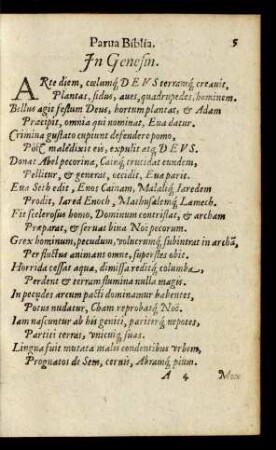 Parua Biblia. 5
In Genesin.
ARte diem, cœlumq́; DEVS terramq́; creauit,
Plantas, sidus, aues, quadrupedes, hominem.
Bellus agit festum Deus, hortum plantat, & Adam
Præcipit, omnia qui nominat, Eua datur.
Crimina gustato cupiunt defendere pomo,
maledixit eis, expulit atq; DEVS.
Donat Abel pecorina, Cainq́; trucidat eundem,
Pellitur, & generat, occidit, Eua parit.
Eua Seth edit, Enos Cainam, Malaliq́; Iaredem
Prodit, Iared Enoch, Mathusalemq́; Lamech.
Fit scelerosus homo, Dominum contristat, & archam
Præparat, & seruat bina Noë pecorum.
Grex hominum, pecudum, volucrumq́; subintrat in archā,
Per fluctus animans omne, superstes obit.
Horrida cessat aqua, dimissa reditq́; columba,
Perdent & terram flumina nulla magis.
In pecudes arcum pacti dominamur habentes,
Potus nudatur, Cham reprobatq́; Noë.
Iam nascuntur ab his geniti, pariterq́; nepotes,
Partiri terras, vnicuiq́; suas.
Lingua fuit mutata malis condentibus vrbem,
Prognatos de Sem, cernis, Abramq́; pium.
A 4 Mox